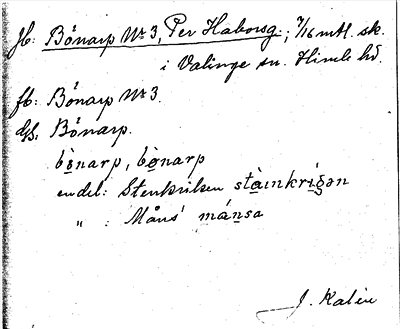 Jb: Bönarp No 3, Per Haborsg.; 7/16 mtl. sk.
i Valinge sn. Himle hd.
fb: Bönarp No 3.
Gs: Bönarp.
bò̤narp, bò̤narp
endel: Stenkriken stàinkrìgən
" : Måns' mánsa
J. Kalén